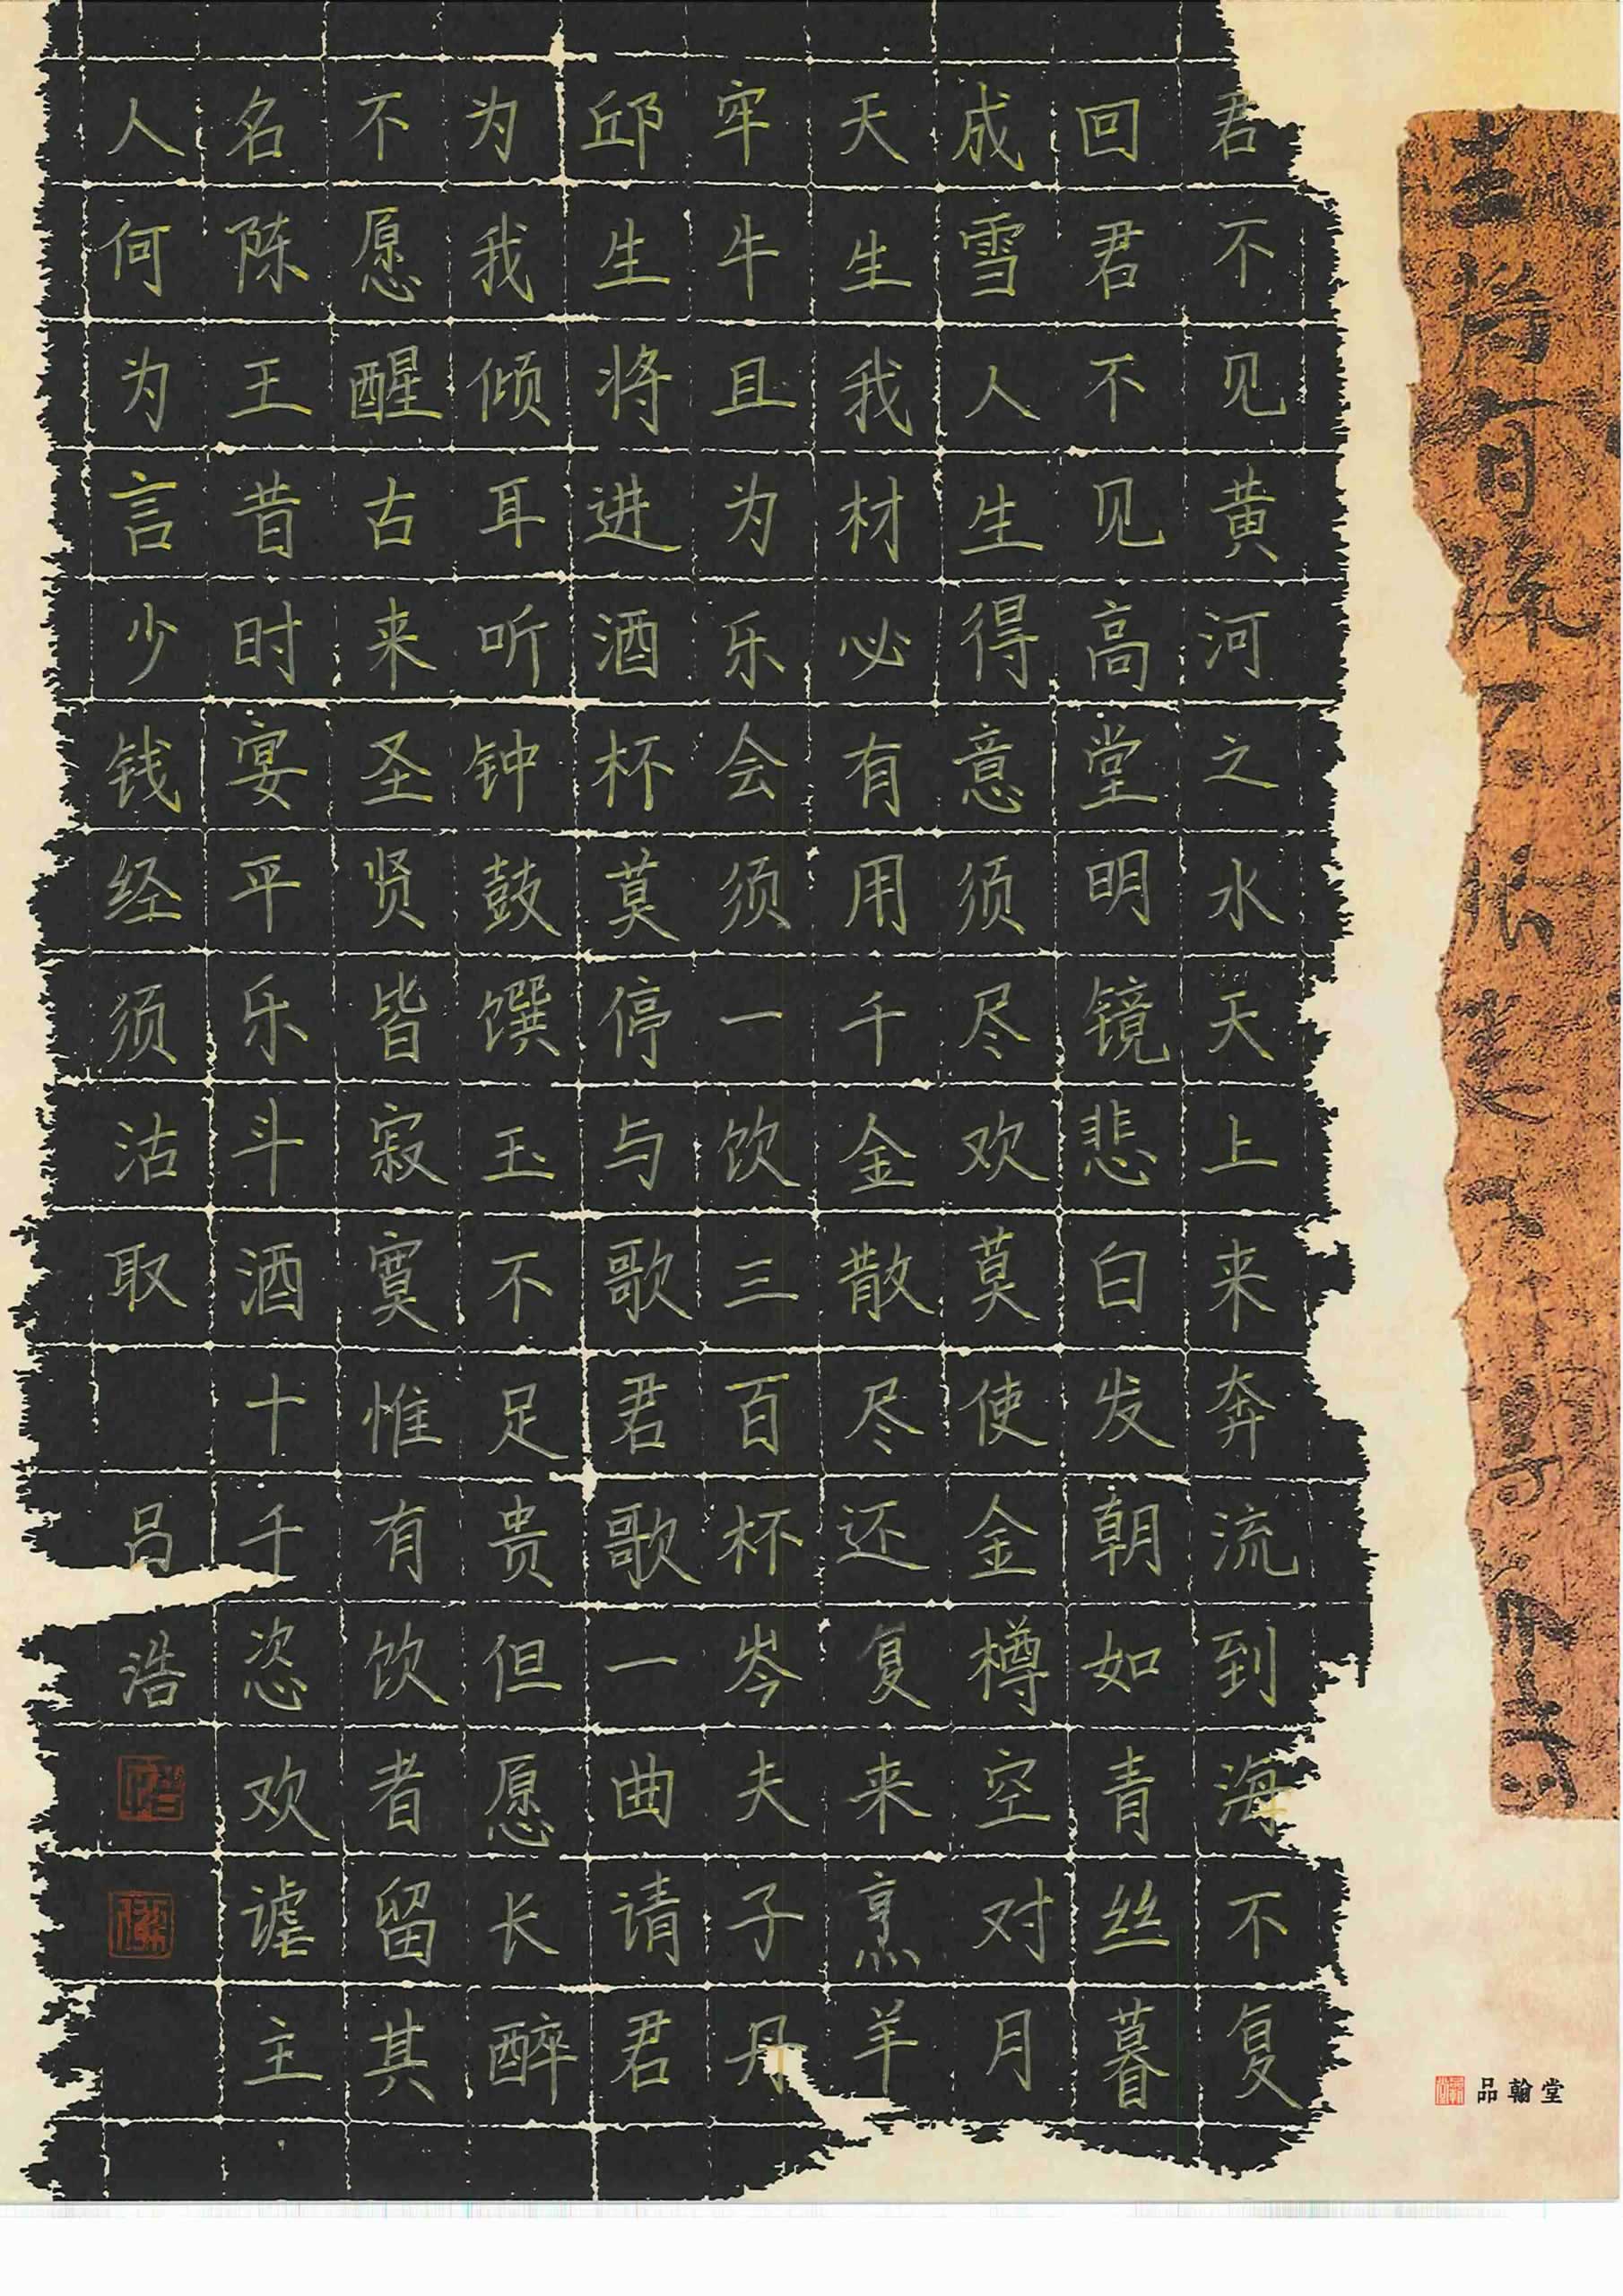 君不见黄河之水天上来奔流到海不复
回君不见高堂明镜悲白发朝如青丝暮
成雪人生得意须尽欢莫使金樽空对月
天生我材必有用千金散尽还复来烹羊
牢牛且为乐会须一饮三百杯岑夫子丹
邱生将进酒杯莫停与歌君歌一曲请君
为我倾耳听钟鼓馔玉不足贵但愿长醉
不愿醒古来圣贤皆寂寞惟有饮者留其
名陈王昔时宴平乐斗酒十千恣欢谑主
人何为言少钱经须沽取 吕浩
品翰堂